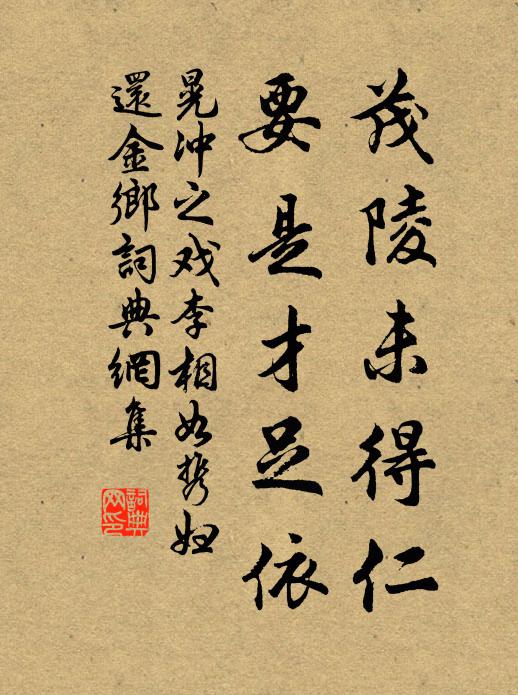 茂陵未得仁
要是才足依
晁冲之戏李相如携妇
還金鄉詞典網集
詞典網印